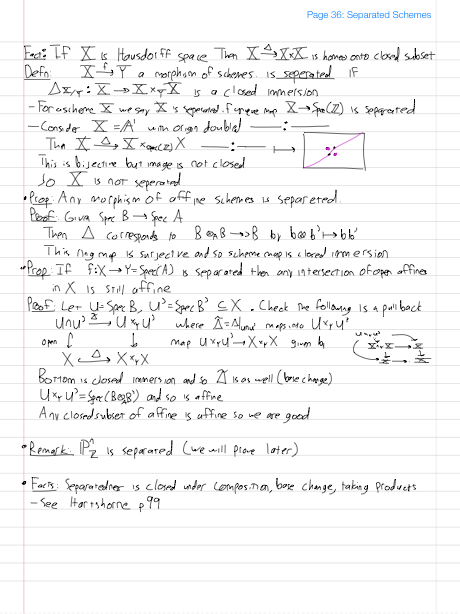 Page 36: Separated Schemes
Fact: If X is Hausdorff space Then X →Δ X×X is homeo onto closed subset
Defn: X →f Y a morphism of schemes. is seperated if
Δ_{X/Y} : X → X ×_Y X is a closed immersion
- For a scheme X we say X is seperated if unique map X → Spec(Z) is separated
- Consider X = A¹ with origin doubled
Then X →Δ X ×_{Spec(Z)} X
This is bijective but image is not closed
So X is not seperated
• Prop: Any morphism of affine schemes is separeted
Proof: Given Spec B → Spec A
Then Δ corresponds to B ⊗_A B → B by b⊗b' ↦ bb'
This ring map is surjective and so scheme map is closed immersion
• Prop: If f: X → Y = Spec(A) is separated then any intersection of open affines
in X is still affine
Proof: Let U = Spec B, U' = Spec B' ⊆ X. Check the following is a pullback
U∩U' →Δ̃ U ×_Y U' where Δ̃ = Δ|_{U∩U'} maps into U ×_Y U'
open ↓ ↓ map U ×_Y U' → X ×_Y X given by
X →Δ X ×_Y X
Bottom is closed immersion and so Δ̃ is as well (base change)
U ×_Y U' = Spec(B⊗B') and so is affine
Any closed subset of affine is affine so we are good
• Remark: P^n_Z is separated (we will prove later)
• Facts: Separatedness is closed under composition, base change, taking products
- See Hartshorne p 99